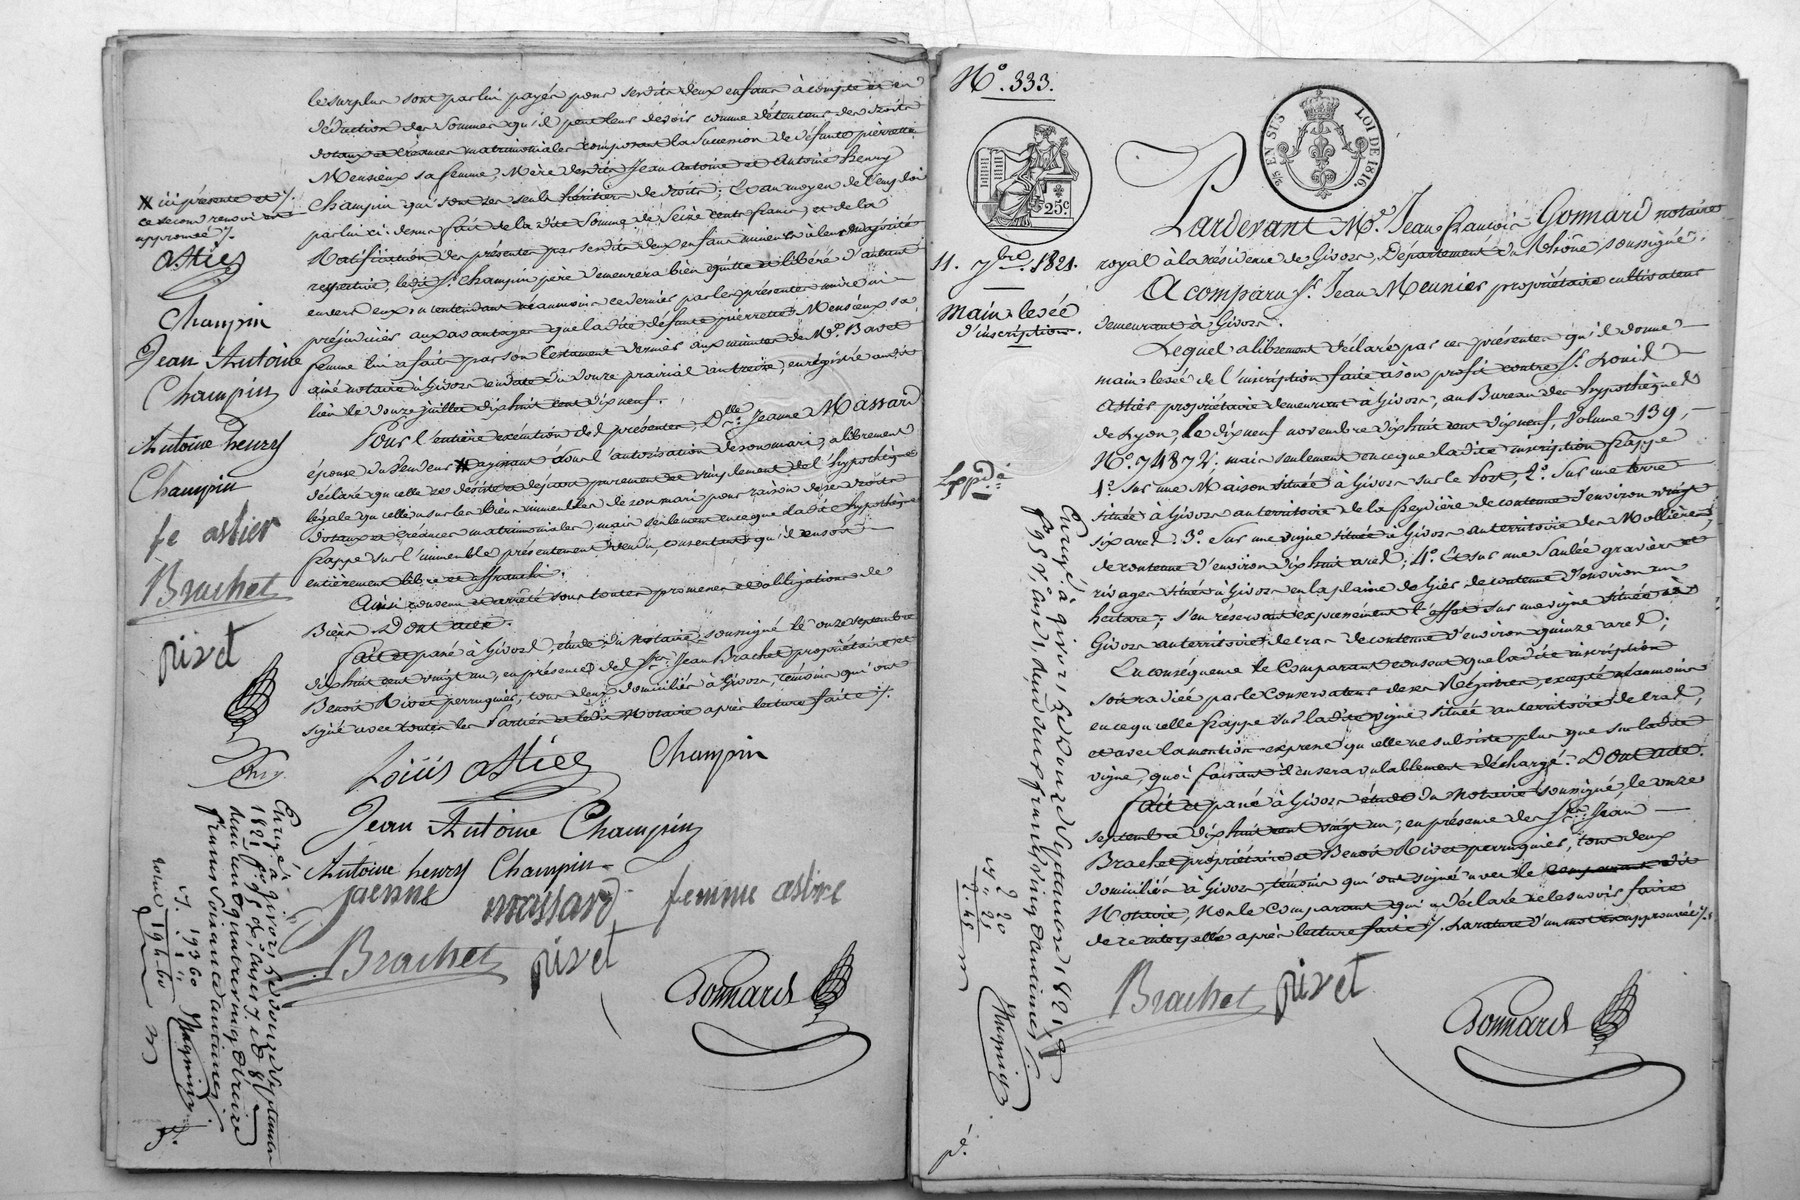 le surplus sont par lui payés pour sesdits deux enfans à compte et en
déduction des sommes qu'il peut leurs devoir comme détenteur des droits
dotaux et créances matrimoniales composant la succession de défunte pierrette
Mensieux sa femme, Mère desdits Jean Antoine et Antoine henry
Champin qui sont ses seuls héritiers de droits; Et au moyen de l'emploi
par lui ci-dessus fait de la dite somme de Seize cents francs, et de la
Ratification des présentes par sesdits deux enfans mineurs à leur majorité
respective, ledit Sr. Champin père demeurera bien quitte et libéré d'autant
envers eux, n'entendant néanmoins ce dernier par les présentes nuire ni
préjudicier aux avantages que ladite défunte pierrette Mensieux sa
femme lui a fait par son testament dernier aux minutes de Me. Bavet
ainé notaire à Givors en date du douze prairial an treize, enregistré audit
lieu le douze juillet dix huit cent dix neuf.
Pour l'entière exécution des présentes, Dlle. Jeanne Massard
épouse du vendeur # agissant sous l'autorisation de son mari, a librement
déclaré qu'elle se désiste et départ purement et simplement de l'hypothèque
légale qu'elle a sur les biens immeubles de son mari pour raison de ses droits
dotaux et créances matrimoniales, mais seulement en ce que ladite hypothèque
frappe sur l'immeuble présentement vendu, consentant qu'il en soit
entièrement libre et affranchi.
Ainsi convenu et arrêté sous toutes promesses et obligations de
Biens. Dont acte.
fait et passé à Givors, étude du Notaire soussigné le onze septembre
dix huit cent vingt un, en présence des Srs. Jean Brachet propriétaire et
Benoit Rivet perruquier, tous deux domiciliés à Givors, témoins qui ont
signé avec toutes les Parties et ledit Notaire après lecture faite ./.
Loüis Astier Champin
Jean Antoine Champin
Antoine henry Champin
jaenne massard femme astire
Brachet rivet
Gonnard
# ici présente et ./.
ce second renvoi est
approuvé ./.
Astier
Champin
Jean Antoine
Champin
Antoine henry
Champin
fe astier
Brachet
rivet
Enregé. à givors, le douze Septembre
1821 fo. 95 ro, cases 7 et 8
francs Soixante centimes
19360
194-60
N°. 333.
EN SUS LOI DE 1816.
25c
11. 7bre. 1821.
Main levée
d'inscription.
Expdié
Pardevant Me. Jean françois Gonnard notaire
royal à la résidence de Givors, Département du Rhône soussigné.
A comparu Sr. Jean Meunier propriétaire cultivateur
demeurant à Givors.
Lequel a librement déclaré par ces présentes qu'il donne
main-levée de l'inscription faite à son profit contre Sr. Louis
Astier propriétaire demeurant à Givors, au Bureau des hypothèques
de Lyon, le dix neuf novembre dix huit cent dix neuf, Volume 139,
N°. 74872; mais seulement en ce que ladite inscription frappe
1°. sur une Maison située à Givors sur le Port, 2°. Sur une terre
située à Givors au territoire de la Freydière de contenue d'environ vingt
six ares. 3°. Sur une vigne située à Givors au territoire des Mollières
de contenue d'environ dix huit ares; 4°. Et sur une Saulée gravière et
rivages située à Givors en la plaine de Gier de contenue d'environ un
hectare; s'en réservant expressément l'effet sur une vigne située à
Givors au territoire de cras de contenue d'environ quinze ares;
En conséquence le Comparant consent que ladite inscription
soit radiée par le Conservateur de ses Régistres, excepté néanmoins
en ce qu'elle frappe sur ladite vigne située au territoire de cras,
et avec la mention expresse qu'elle ne subsiste plus que sur ladite
vigne, quoi faisant il en sera valablement déchargé. Dont acte.
fait et passé à Givors étude du Notaire soussigné, le onze
septembre dix huit cent vingt un, en présence des Srs. Jean
Brachet propriétaire et Benoit Rivet perruquier, tous deux
domiciliés à Givors, témoins qui ont signé avec le comparant dit
Notaire, Non le Comparant qui a déclaré ne le savoir faire
de ce interpellé après lecture faite ./. La rature d'un mot est approuvée ./.
Brachet rivet
Gonnard
Enregé. à givors, le douze Septembre 1821
fo. 95 vo, case 1, deux francs vingt centimes
2 20
22
2.42